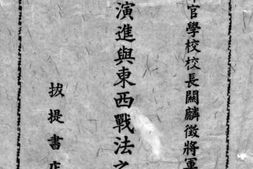 官學校校長關麟徵將軍
演進與東西戰法之
拔提書店